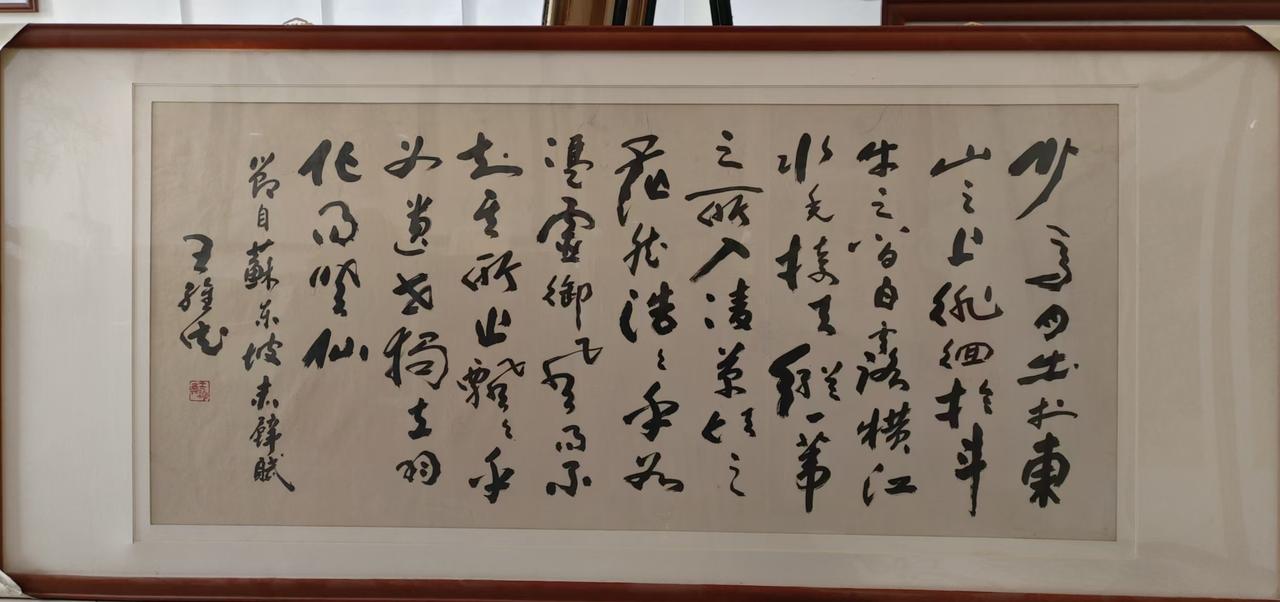 少焉月出於東
山之上徘徊於斗
牛之間白露橫江
水光接天縱一葦
之所入凌萬頃之
茫然浩々乎如
馮虛御風而不
知其所止飄々乎
如遺世獨立羽
化而登仙
節自蘇東坡赤壁賦
王